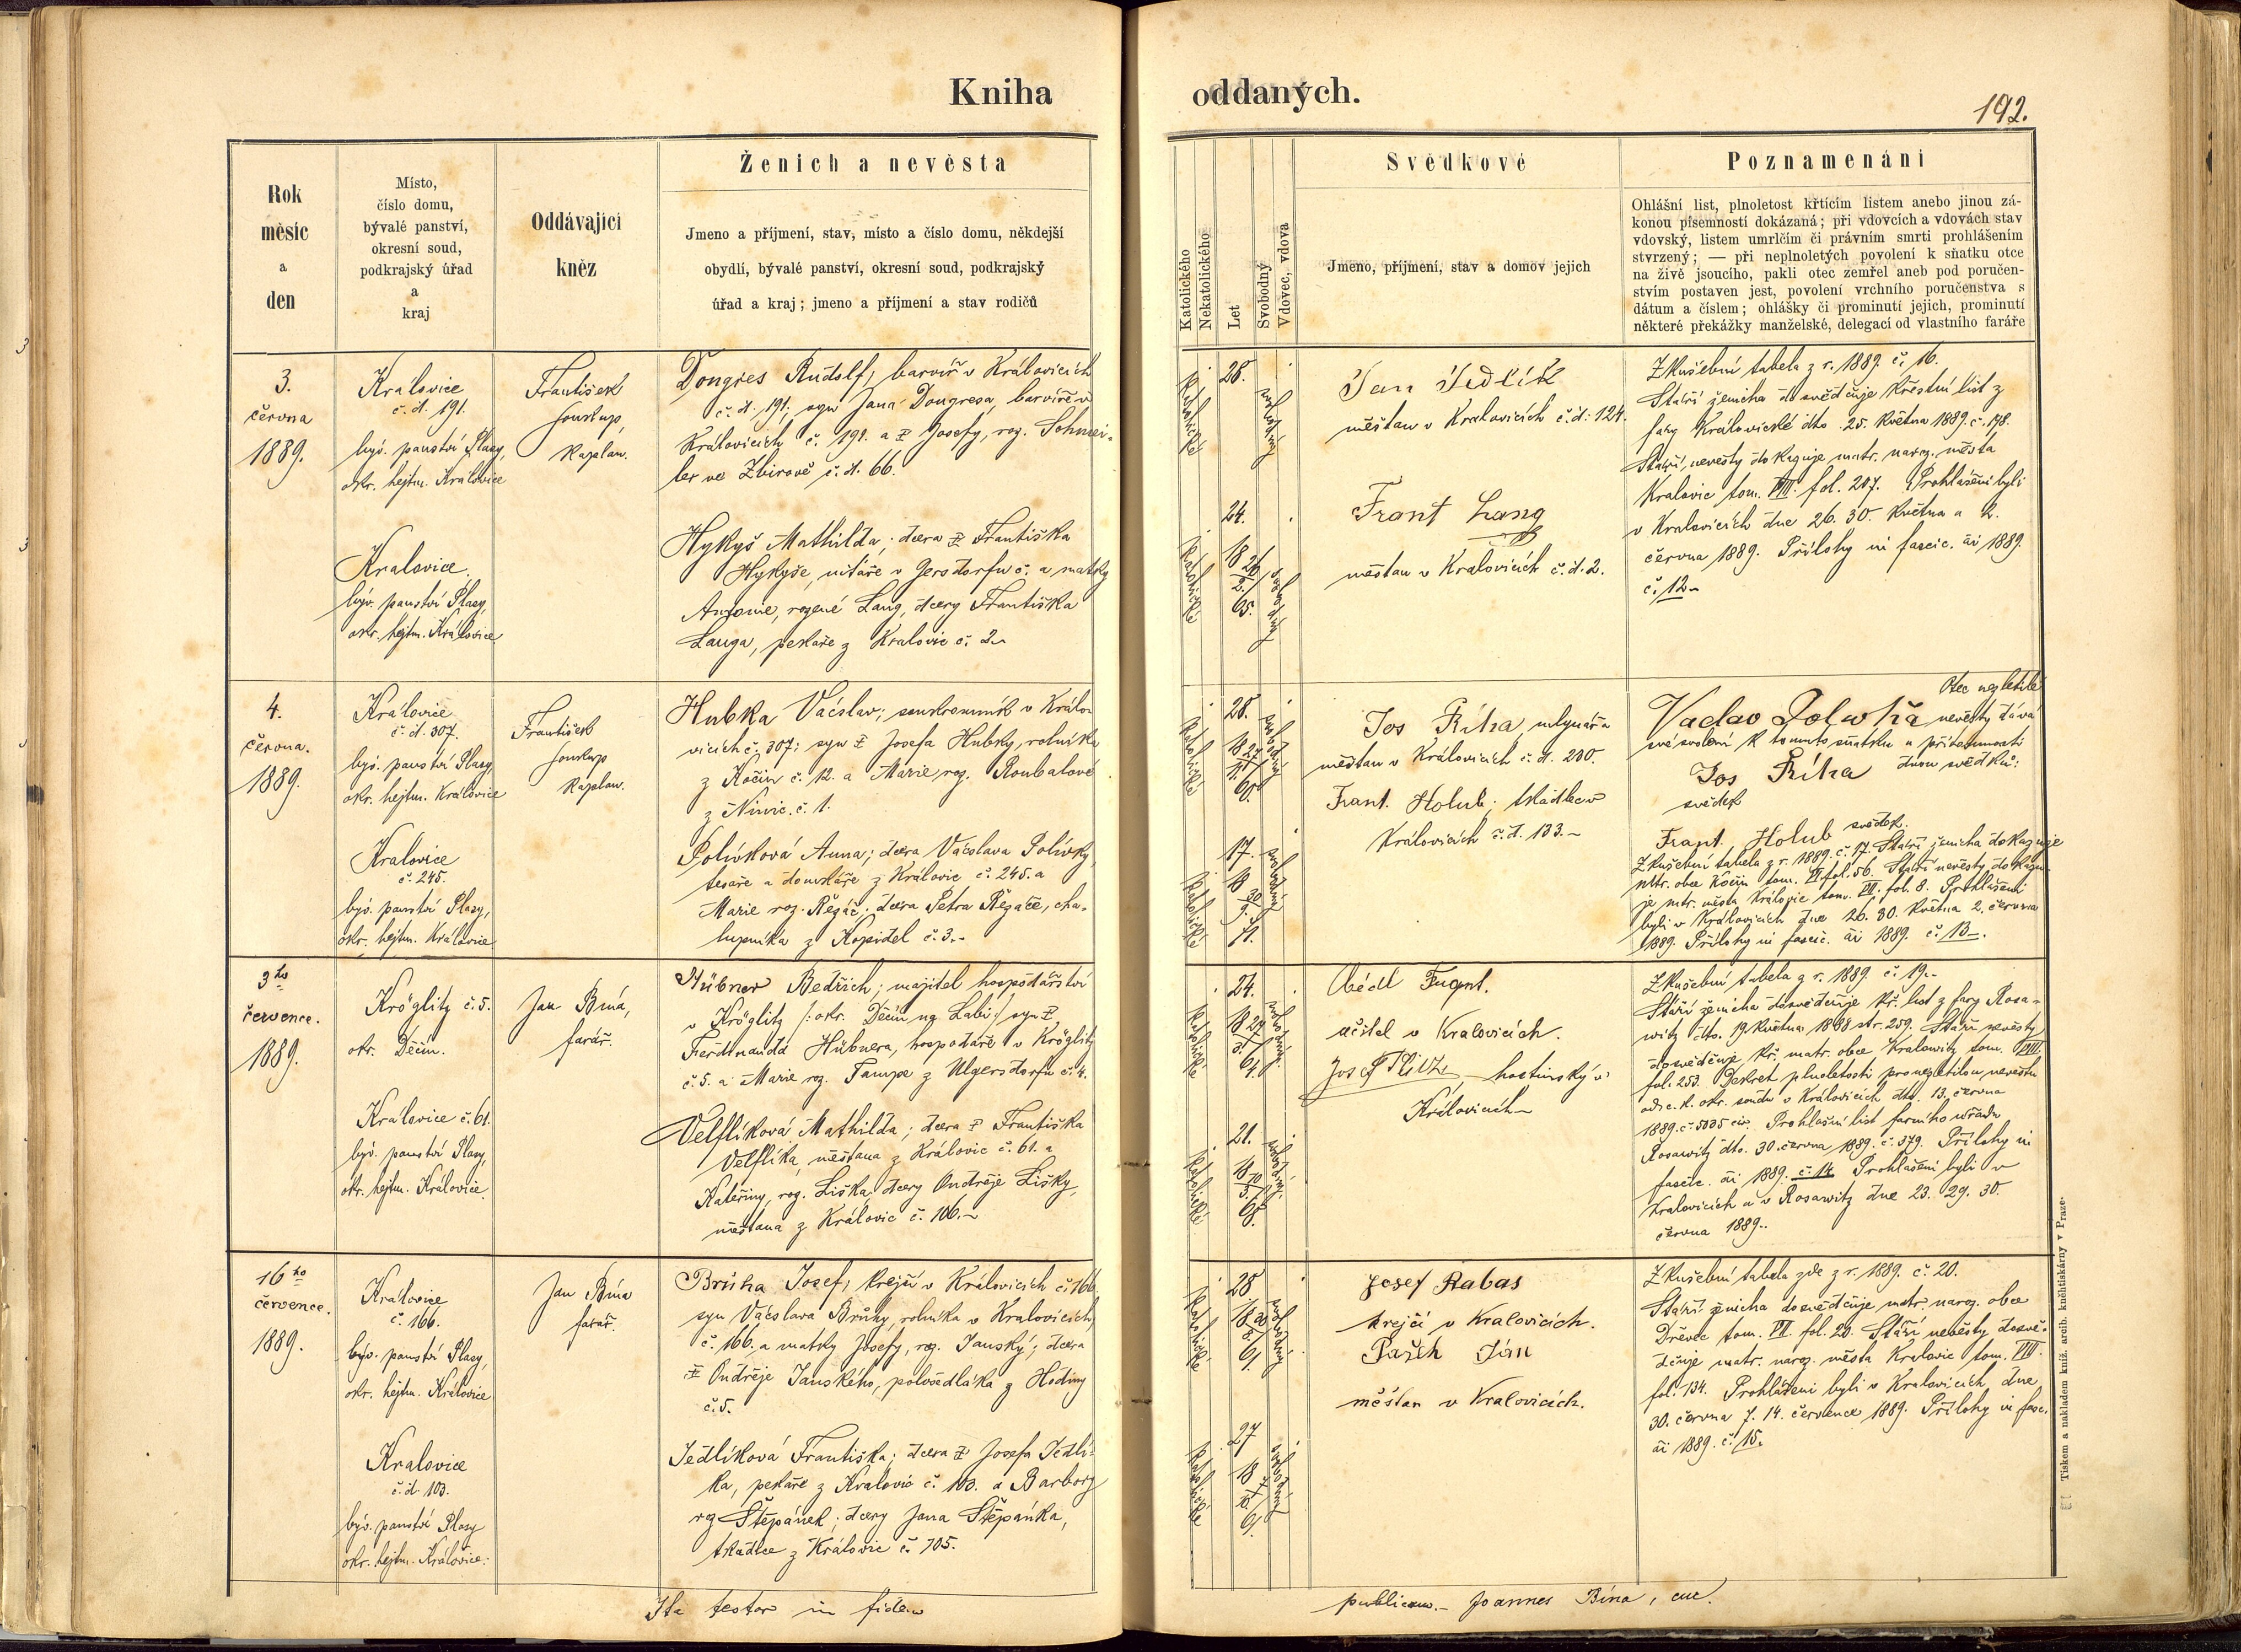 Kniha
oddaných.
192.
Rok
měsíc
a
den
Místo,
číslo domu,
bývalé panství,
okresní soud,
podkrajský úřad
a
kraj
Oddávající
kněz
Ženich a nevěsta
Jmeno a příjmení, stav, místo a číslo domu, někdejší
obydlí, bývalé panství, okresní soud, podkrajský
úřad a kraj; jmeno a příjmení a stav rodičů
Katolického
Nekatolického
Let
Svobodný
Vdovec, vdova
Svědkové
Jmeno, příjmení, stav a domov jejich
Poznamenání
Ohlášní list, plnoletost křtícím listem anebo jinou zá-
konou písemností dokázaná; při vdovcích a vdovách stav
vdovský, listem umrlčím či právním smrti prohlášením
stvrzený; — při neplnoletých povolení k sňatku otce
na živě jsoucího, pakli otec zemřel aneb pod poručen-
stvím postaven jest, povolení vrchního poručenstva s
dátum a číslem; ohlášky či prominutí jejich, prominutí
některé překážky manželské, delegací od vlastního faráře
3.
června
1889.
Kralovice
č. d. 191.
býv. panství Plasy,
okr. hejtm. Kralovice
František
Soukup,
kaplan.
Dongres Rudolf, barvíř v Kralovicích
č. d. 191; syn Jana Dongresa, barvíře v
Kralovicích č. 191. a Josefy, roz. Schnei-
ler ve Zbirově č. d. 66.
Kralovice
býv. panství Plasy
okr. hejtm. Kralovice
Hykyš Mathilda; dcera Františka
Hykyše, v Gersdorfu č. a matky
Antonie, rozené Lang, dcery Františka
Langa, pekaře z Kralovic č. 2.
katolické
28.
svobodný
katolické
24.
18 26/2. 65.
svobodný
Jan Jedlík
měštan v Kralovicích č. d: 124.
Frant Lang
měštan v Kralovicích č. d. 2.
Zkušební tabela z r. 1889. č. 16.
Stáří ženicha dosvědčuje křestní list z
fary Kralovické dto. 25. května 1889. č. 178.
Stáří nevěsty dokazuje matr. naroz. města
Kralovic tom. VIII. fol. 207. Prohlášeni byli
v Kralovicích dne 26. 30. května a 2.
června 1889. Přílohy in fascic. ai 1889.
č. 12.
4.
června.
1889.
Kralovice
č. d. 307.
býv. panství Plasy
okr. hejtm. Kralovice
František
Soukup
kaplan.
Hubka Václav; soukromník v Králo-
vicích č. 307; syn Josefa Hubky, rolníka
z Kočín č. 12. a Marie, roz. Roubalové
z č. 1.
Kralovice
č. 245.
býv. panství Plasy,
okr. hejtm. Kralovice
Polívková Anna; dcera Václava Polívky,
tesaře a domkáře z Kralovic č. 245. a
Marie roz. Řezáč; dcera Petra Řezáče, cha-
lupníka z Kopidel č. 3.
katolické
28.
svobodný
katolické
17.
18 30/9. 71.
svobodná
Jos Říha mlynář a
měštan v Kralovicích č. d. 230.
Frant. Holub; tkadlec v
Kralovicích č. d. 133.
Otec nezletilé
Vaclav Polívka nevěsty dává
své svolení k tomuto sňatku u přítomnosti
Jos Říha dvou svědků:
svědek
Frant. Holub svědek.
Zkušební tabela z r. 1889. č. 17. Stáří ženicha dokazuje
mtr. obce Kočín tom. VI fol. 56. Stáří nevěsty dokazu-
je mtr. města Kralovic tom. VII. fol. 8. Prohlášeni
byli v Kralovicích dne 26. 30. května 2. června
1889. Přílohy in fascic. ai 1889. č. 13.
3ho
července.
1889.
Kröglitz č. 5.
okr. Děčín.
Jan Bína,
farář.
Hübner Bedřich; majitel hospodářství
v Kröglitz /: okr. Děčín na Labi :/ syn
Ferdinanda Hübnera, hospodáře v Kröglitz
č. 5. a Marie roz. Tampe z Ulgersdorfu č. 4.
Kralovice č. 61.
býv. panství Plasy,
okr. hejtm. Kralovice.
Velflíková Mathilda; dcera Františka
Velflíka, měštana z Kralovic č. 61. a
Kateřiny, roz. Liška, dcery Ondřeje Lišky,
měštana z Kralovic č. 106.
katolické
24.
svobodný
katolické
21.
svobodná
Fugnt.
učitel v Kralovicích.
Josef hostinský v
Kralovicích
Zkušební tabela z r. 1889. č. 19.
Stáří ženicha dosvědčuje kř. list z fary Rosa-
witz dto. 19. května 1888 str. 259. Stáří nevěsty
dosvědčuje kř. matr. obce Kralowitz tom. VIII.
fol. 253. Dekret plnoletosti pro nezletilou nevěstu
od c. k. okr. soudu v Kralovicích dto. 13. června
1889. č. 5035 civ. Prohlašní list farního uřadu
Rosawitz dto. 30. června 1889. č. 379. Přílohy in
fascic. ai 1889. č. 14. Prohlášeni byli v
Kralovicích a v Rosawitz dne 23. 29. 30.
června 1889.
16ho
července.
1889.
Kralovice
č. 166.
býv. panství Plasy,
okr. hejtm. Kralovice
Jan Bína
farář.
Brůha Josef; krejčí v Kralovicích č. 166
syn Václava Brůhy, rolníka v Kralovicích,
č. 166. a matky Josefy, roz. Janský; dcera
Ondřeje Janského, polosedláka z Hodiny
č. 5.
Kralovice
č. d. 103.
býv. panství Plasy
okr. hejtm. Kralovice.
Jedlíková Františka; dcera Josefa Jedlí-
ka, pekaře z Kralovic č. 103. a Barbory
roz Štěpánek; dcery Jana Štěpánka,
tkadlce z Kralovic č. 105.
katolické
28
svobodný
katolické
27
svobodná
Josef Rabas
krejčí v Kralovicích.
Pašek Ján
měšťan v Kralovicích.
Zkušební tabela zde z r. 1889. č. 20.
Stáří ženicha dosvědčuje matr. naroz. obce
Dřevec tom. VI. fol. 20. Stáří nevěsty dosvě-
dčuje matr. naroz. města Kralovic tom. VIII.
fol. 134. Prohlášeni byli v Kralovicích dne
30. června 7. 14. července 1889. Přílohy in fasc.
ai 1889. č. 15.
Ita testor in fidem
publicam.- Joannes Bína, cur.
Tiskem a nakladem kníž. arcib. knihtiskárny v Praze.